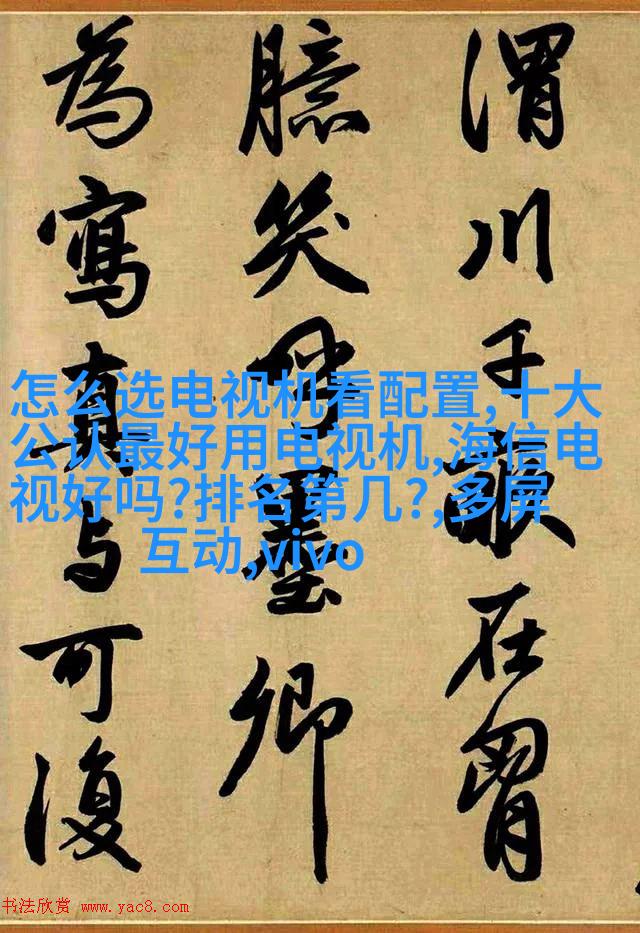 渭川千畝在胷
臆笑呼墨卿
為寫真与可復
怎么选电视机看配置,十大
公认最好用电视机,海信电
视好吗?排名第几?,多屏
互动,vivo
书法欣赏 www.yac8.com